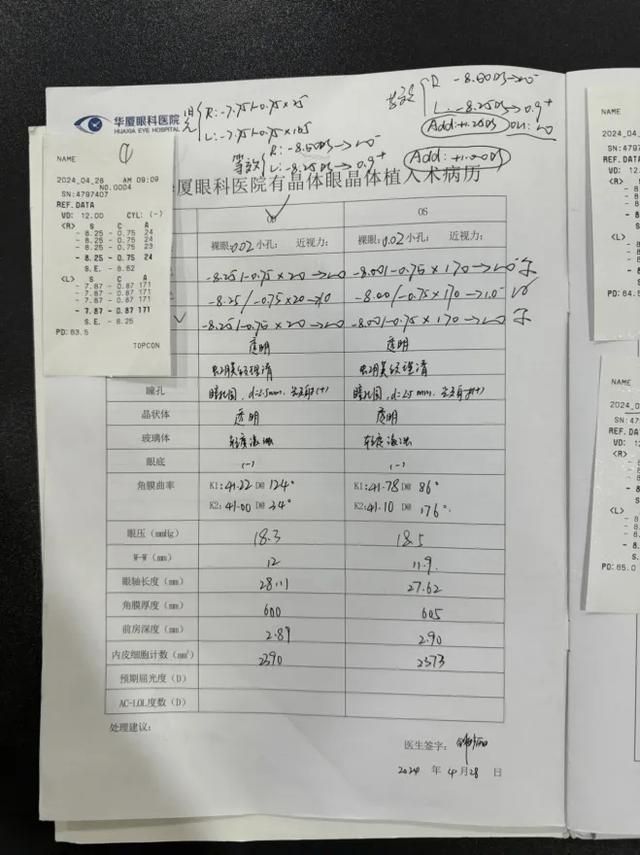 华厦眼科医院
HUAXIA EYE HOSPITAL
R: -7.75/-0.75×25
L: -7.75/-0.75×165
等效
R: -8.50DS→1.0
L: -8.25DS→0.9+
R -8.50DS→1.0
L: -8.25DS→0.9+
Add:+1.25DS OU: 1.0
Add:+1.00DS
厦眼科医院有晶体眼晶体植入术病历
NAME
2024_04_28 AM 09:09
NO.0004
SN:4797407
REF.DATA
VD: 12.00 CYL: (-)
<R> S C A
- 8.25 - 0.75 24
- 8.25 - 0.75 24
- 8.25 - 0.75 23
- 8.25 - 0.75 24
S.E. - 8.62
<L> S C A
- 7.87 - 0.87 171
- 7.87 - 0.87 171
- 7.87 - 0.87 171
- 7.87 - 0.87 171
S.E. - 8.25
PD: 63.5
TOPCON
OD OS
裸眼: 0.02 小孔: 近视力: 裸眼: 0.02 小孔: 近视力:
-8.25/-0.75×20→1.0 -8.00/-0.75×170→1.0
-8.25/-0.75×20→1.0 -8.00/-0.75×170→1.0
-8.25/-0.75×20→1.0 -8.00/-0.75×170→1.0
透明 透明
虹膜纹理清 虹膜纹理清
瞳孔 瞳孔圆, d=2.5mm, 光反射(+) 瞳孔圆, d=2.5mm, 光反射(+)
晶状体 透明 透明
玻璃体 轻度混浊 轻度混浊
眼底 (-) (-)
角膜曲率 K1: 41.22 D@ 124° K1: 41.78 D@ 86°
K2: 41.00 D@ 34° K2: 41.10 D@ 176°
眼压(mmHg) 18.3 18.5
W-W(mm) 12 11.9
眼轴长度(mm) 28.11 27.62
角膜厚度(mm) 600 605
前房深度(mm) 2.89 2.90
内皮细胞计数(mm²) 2390 2373
预期屈光度(D)
AC-LOL度数(D)
处理建议:
医生签字:
2024 年 4 月 28 日
2024_04
SN:4797
REF.DATA
VD: 12
<R>
<L>
PD: 64.5
NAME
2024_0
SN:47
REF.DA
VD: 12
<R>
<L>
PD: 65.0